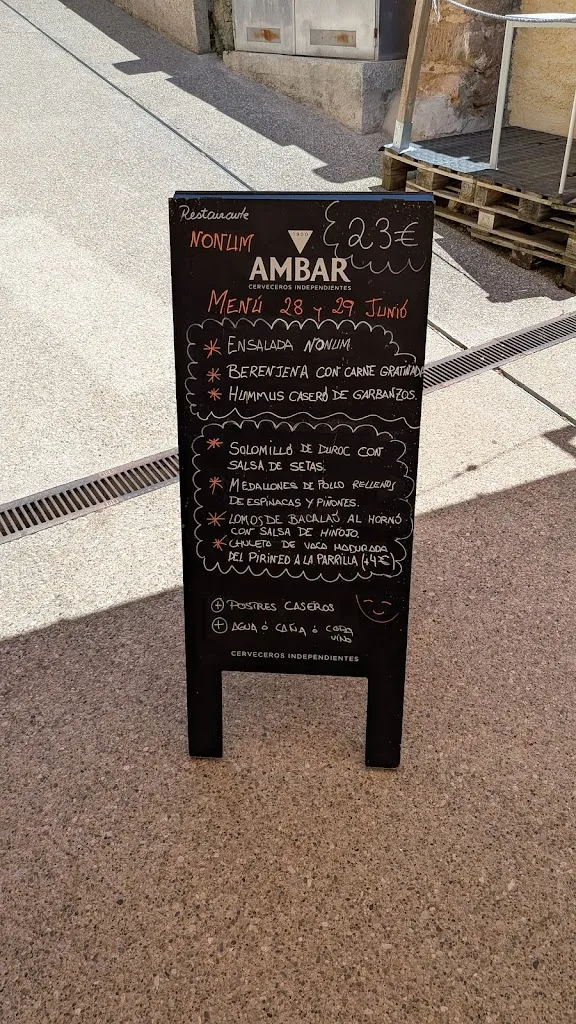 Restaurante
NONUM
1900
23€
AMBAR
CERVECEROS INDEPENDIENTES
MENÚ 28 y 29 JUNIO
* ENSALADA NONUM
* BERENJENA CON CARNE GRATINADA
* HUMMUS CASERO DE GARBANZOS.
* SOLOMILLO DE DUROC CON
SALSA DE SETAS.
* MEDALLONES DE POLLO RELLENOS
DE ESPINACAS Y PIÑONES.
* LOMOS DE BACALAO AL HORNO
CON SALSA DE HINOJO.
* CHULETA DE VACA MADURADA
DEL PIRINEO A LA PARRILLA (+4€)
+ POSTRES CASEROS
+ AGUA ó CAÑA ó COPA
VINO
CERVECEROS INDEPENDIENTES